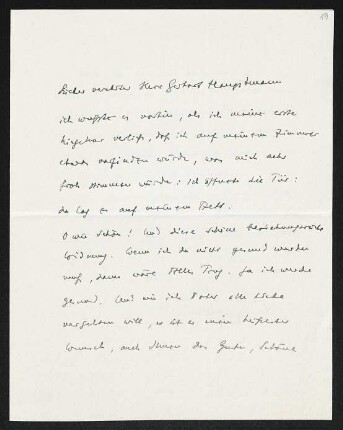 19
Lieber verehrter Herr Gerhart Hauptmann
ich wußte es vorhin, als ich meine erste
verließ, daß ich auf meinem Zimmer
etwas vorfinden würde, was mich sehr
froh stimmen würde: Ich öffnete die Tür:
da lag es auf meinem Bett.
O wie schön! Und diese schöne
Widmung. Wenn ich da nicht gesund werden
muß, dann wäre alles Trug. Ja ich werde
gesund. Und wie ich Ihnen alle Liebe
vergelten will, so ist es mein
Wunsch, auch Ihnen das Gute, Schöne